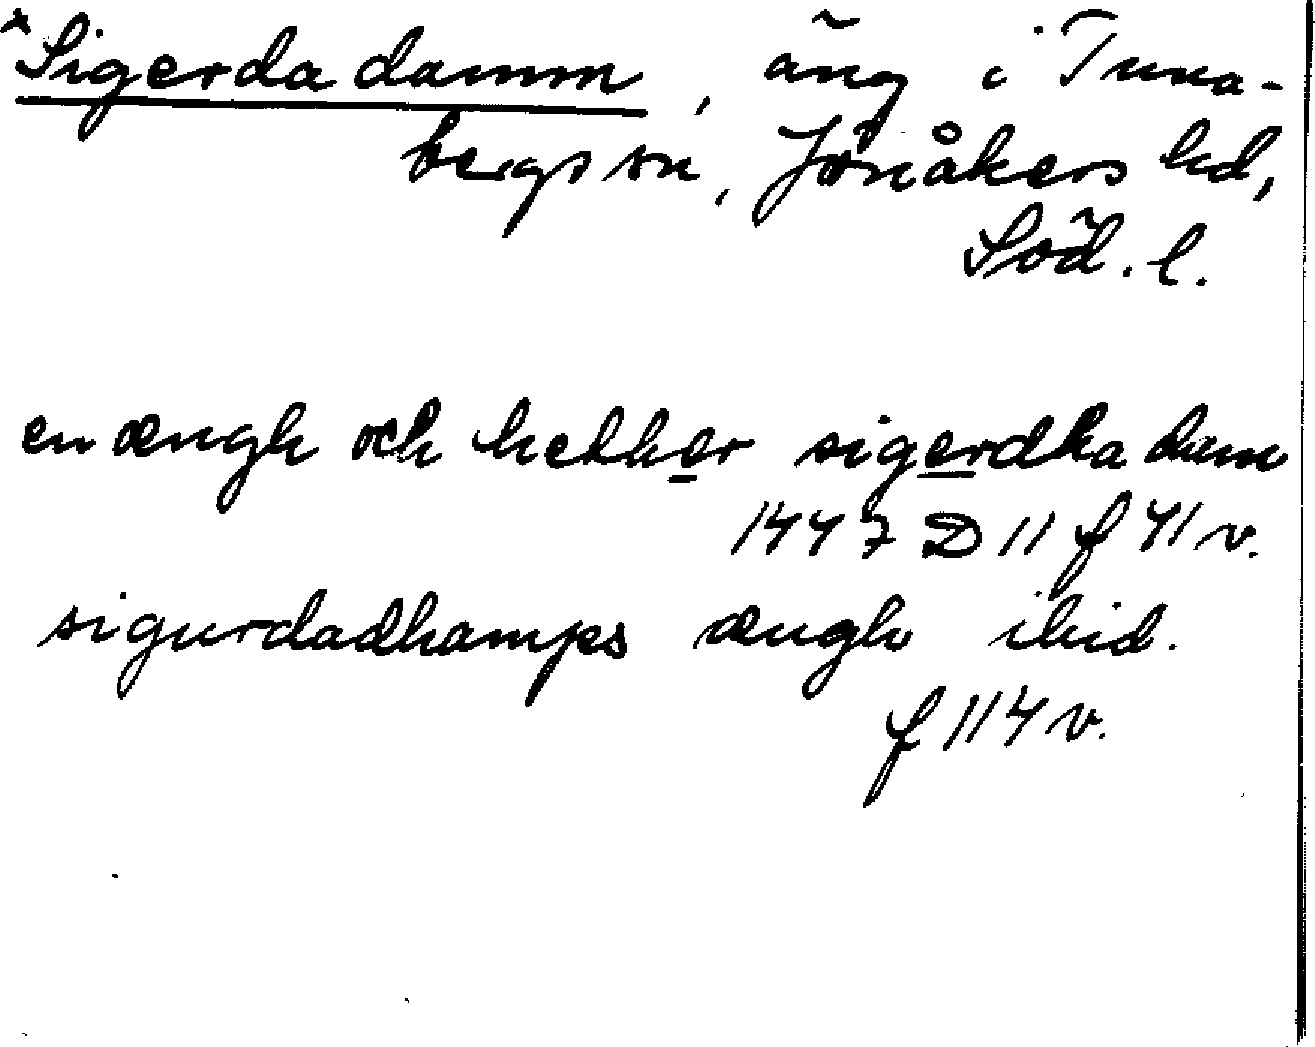 *Sigerda damm, äng i Tuna-
bergs sn, Jönåkers hd,
Söd. l.
en ængh och hethær sigerdha dam
1447 D 11 f 41 v.
sigurdadhamps ængh ibid.
f 114 v.